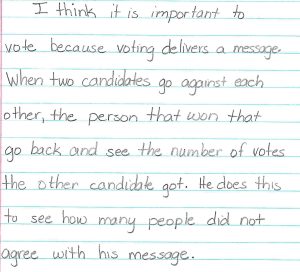 I think it is important to
vote because voting delivers a message.
When two candidates go against each
other, the person that won that
go back and see the number of votes
the other candidate got. He does this
to see how many people did not
agree with his message.